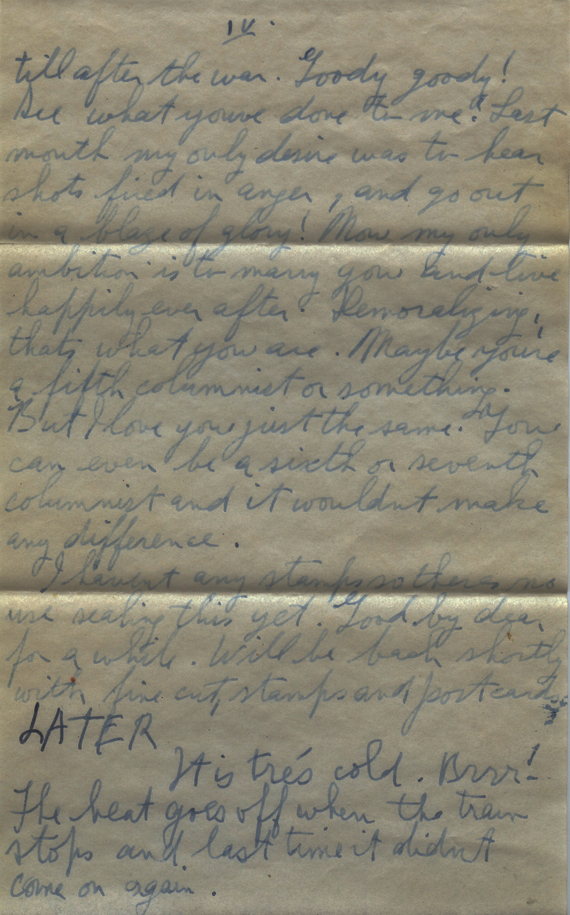 IV.
till after the war. Goody goody!
See what youve done to me? Last
month my only desire was to hear
shots fired in anger, and go out
in a blaze of glory! Now my only
ambition is to marry you and live
happily ever after. Demoralizing,
thats what you are. Maybe you're
a fifth columnist or something.
But I love you just the same. You
can even be a sixth or seventh
columnist and it wouldnt make
any difference.
I havent any stamps so theres no
use sealing this yet. Good by dear
for a while. Will be back shortly
with fine cut, stamps and postcards.
LATER
It is trés cold. Brrr!
The heat goes off when the train
stops and last time it didnt
come on again.